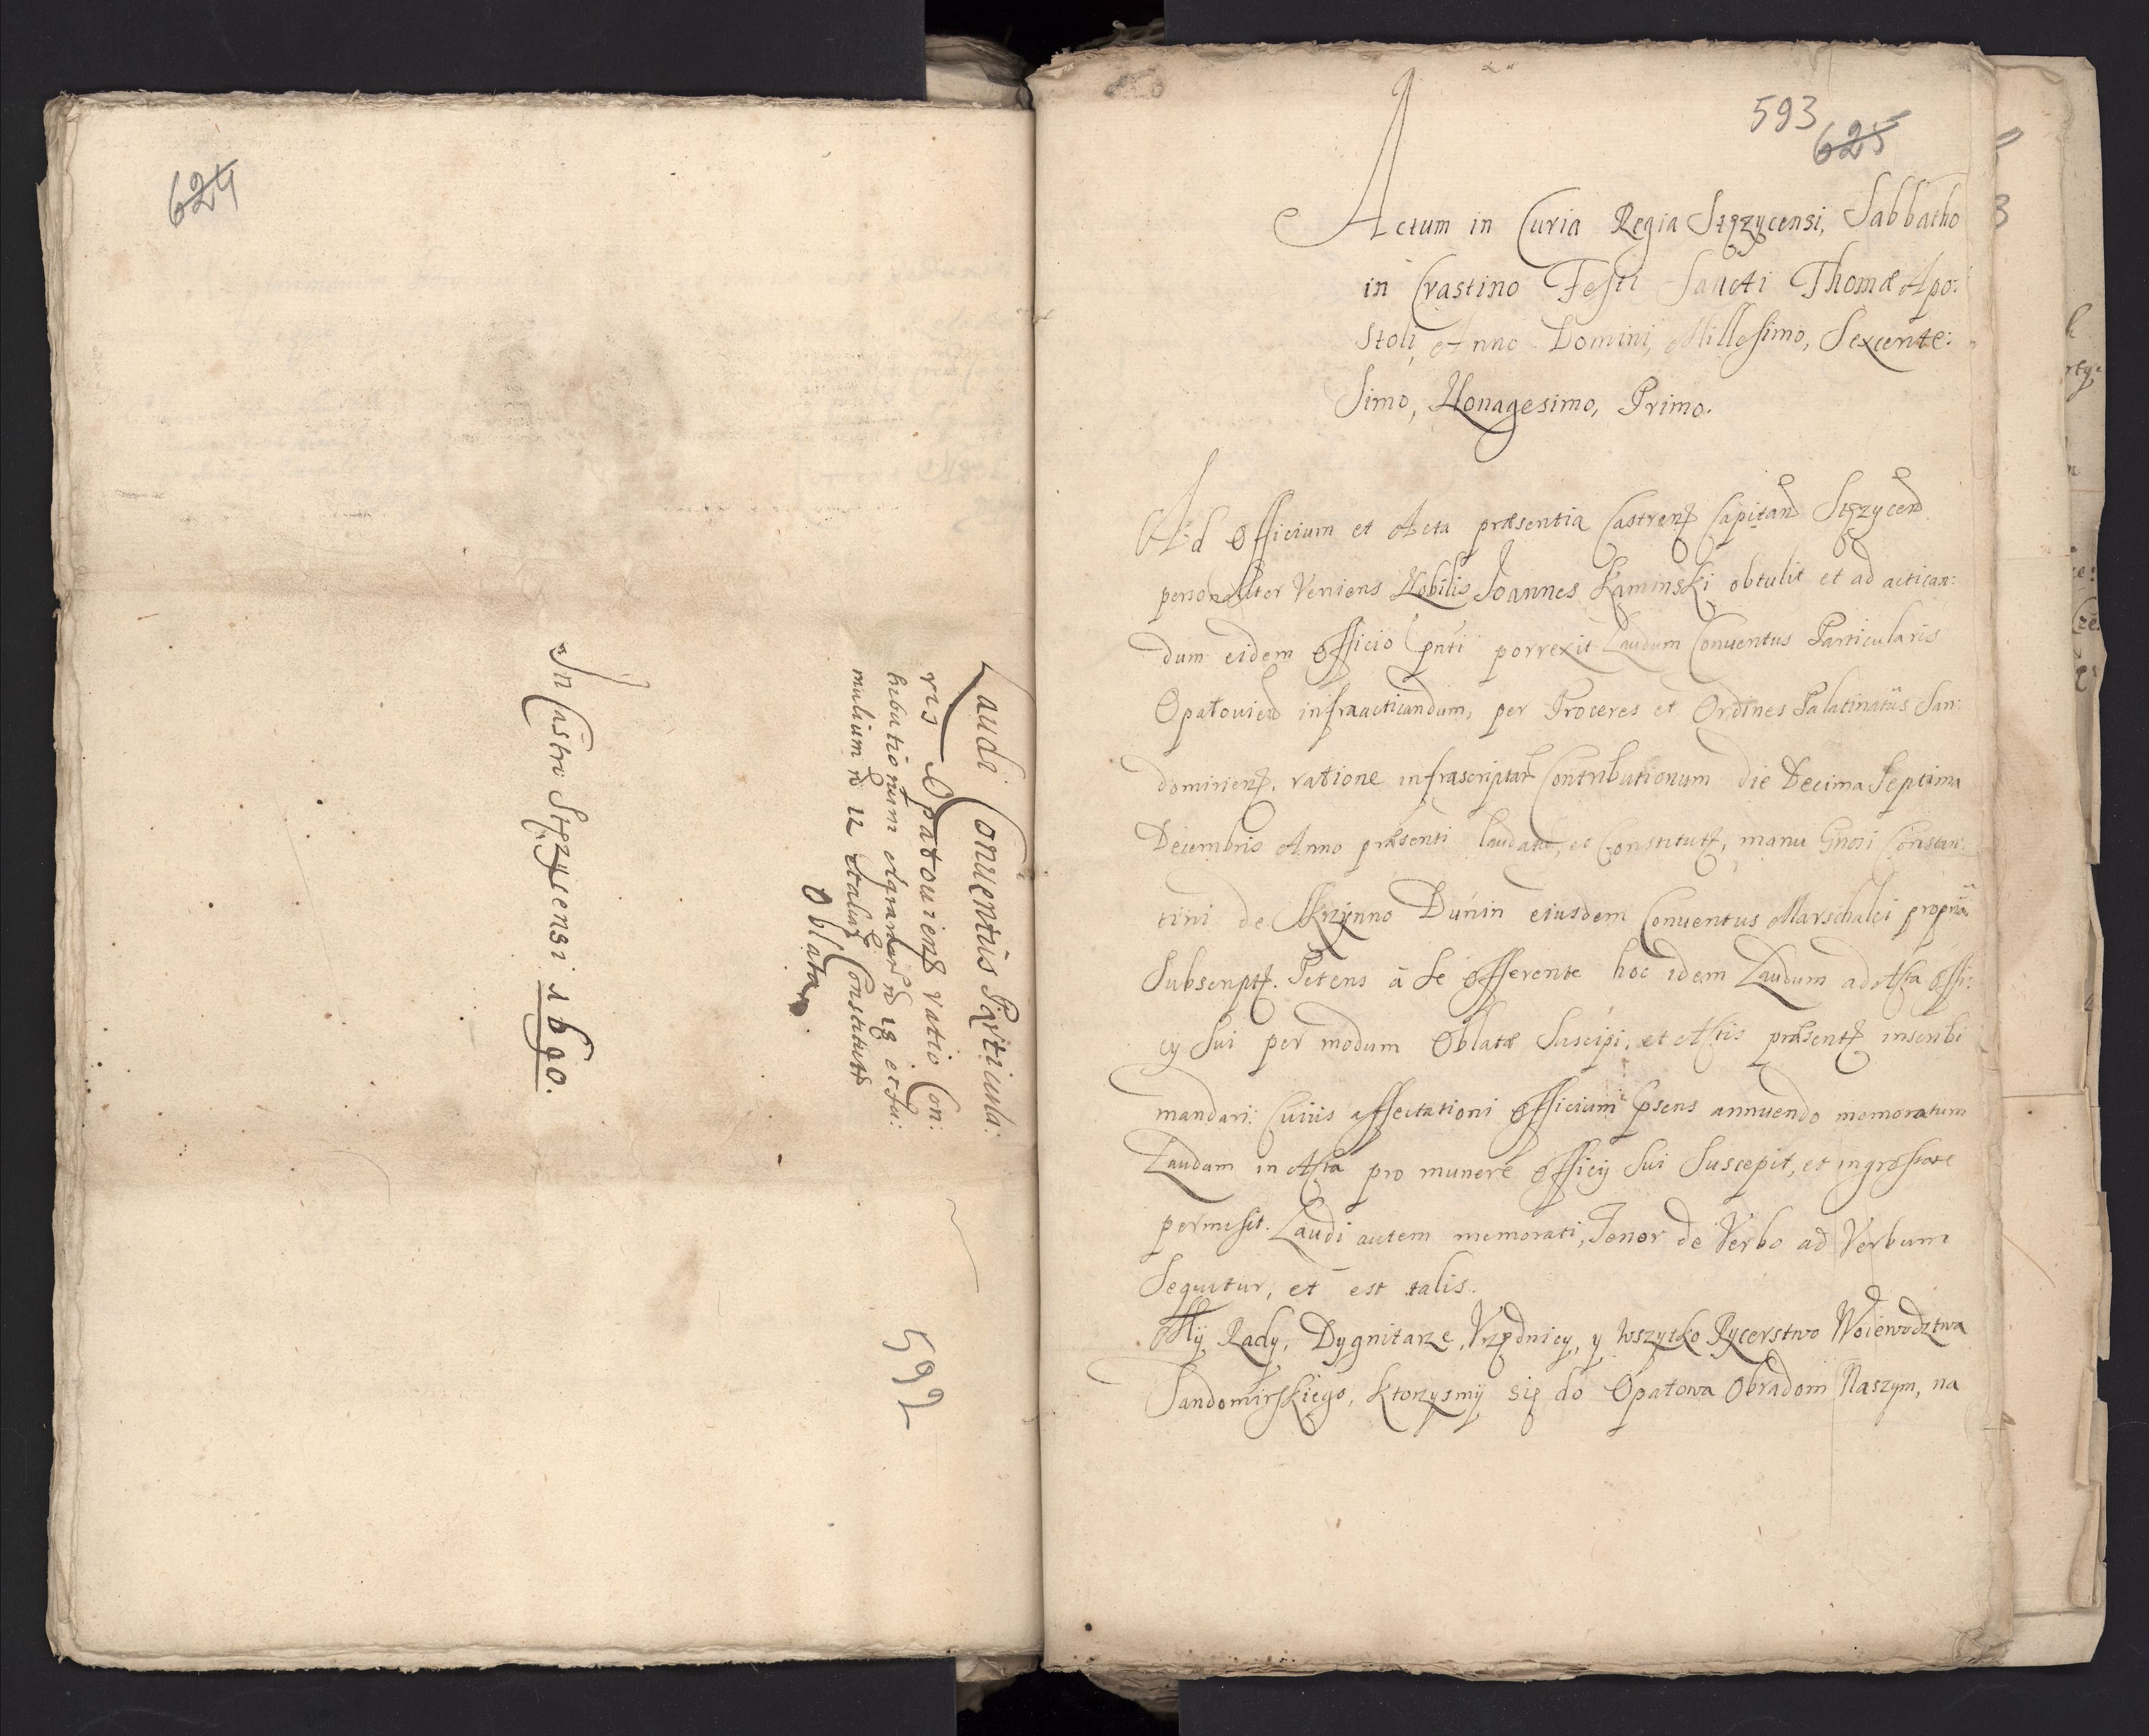 624
Laudi Conuentus Particula:
ris Opatouiens ratio Con:
tributionum agrarar n 18 et fu:
malium n 12 et aliar Constitut
Oblata
In Castro Stęzycensi 1690.
592
593
625
Actum in Curia Regia Stęzycensi, Sabbatho
in Crastino Festi Sancti Thomæ Apo:
stoli, Anno Domini, Millesimo, Sexcente:
simo, Nonagesimo, Primo.
Ad Officium et Acta præsentia Castren Capitan Stęzycen
personaliter Veniens Nobilis Joannes Kaminski obtulit et ad actican:
dum eidem Officio pnti porrexit Laudum Conuentus Particularis
Opatouien infraacticandum, per Proceres et Ordines Palatinatus San:
domirien, ratione infrascriptar Contributionum die Decima Septima
Decembris Anno præsenti laudat, et Constitut, manu Gnosi Constan:
tini de Skrzynno Dunin eiusdem Conuentus Marschalci propria
Subscript. Petens à Se Offerente hoc idem Laudum ad Acta Offi:
cy Sui per modum Oblatæ Suscipi, et Actis præsent inscribi
mandari: Cuius affectationi Officium psens annuendo memoratum
Laudum in Acta pro munere Officij Sui Suscepit, et ingrossare
permisit. Laudi autem memorati, Tenor de Verbo ad Verbum
Sequitur, et est talis.
My Rady, Dygnitarze, Vrzędnicy, y wszytko Rycerstwo Woiewodztwa
Sandomirskiego, ktorzysmy się do Opatowa Obradom Naszym, na